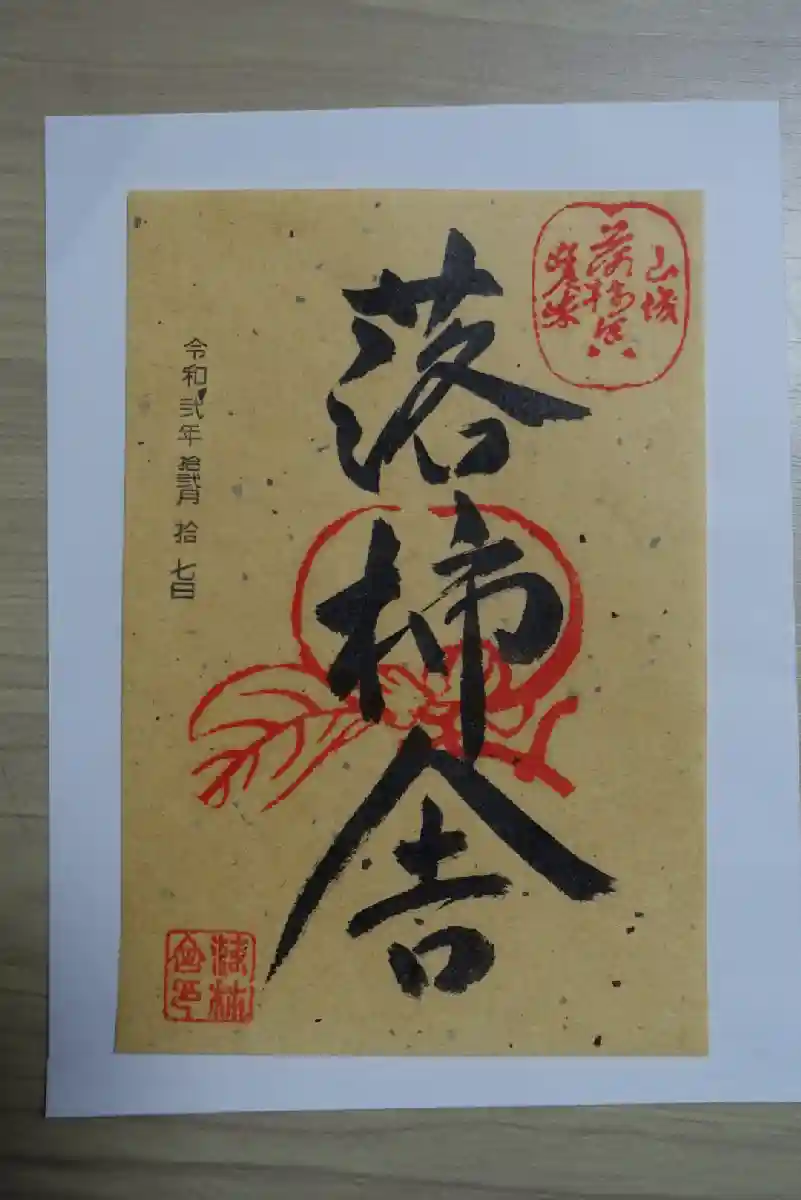 山城
落柿舎
嵯峨
落柿舎
令和弐年拾弐月拾七日
落柿
舎印